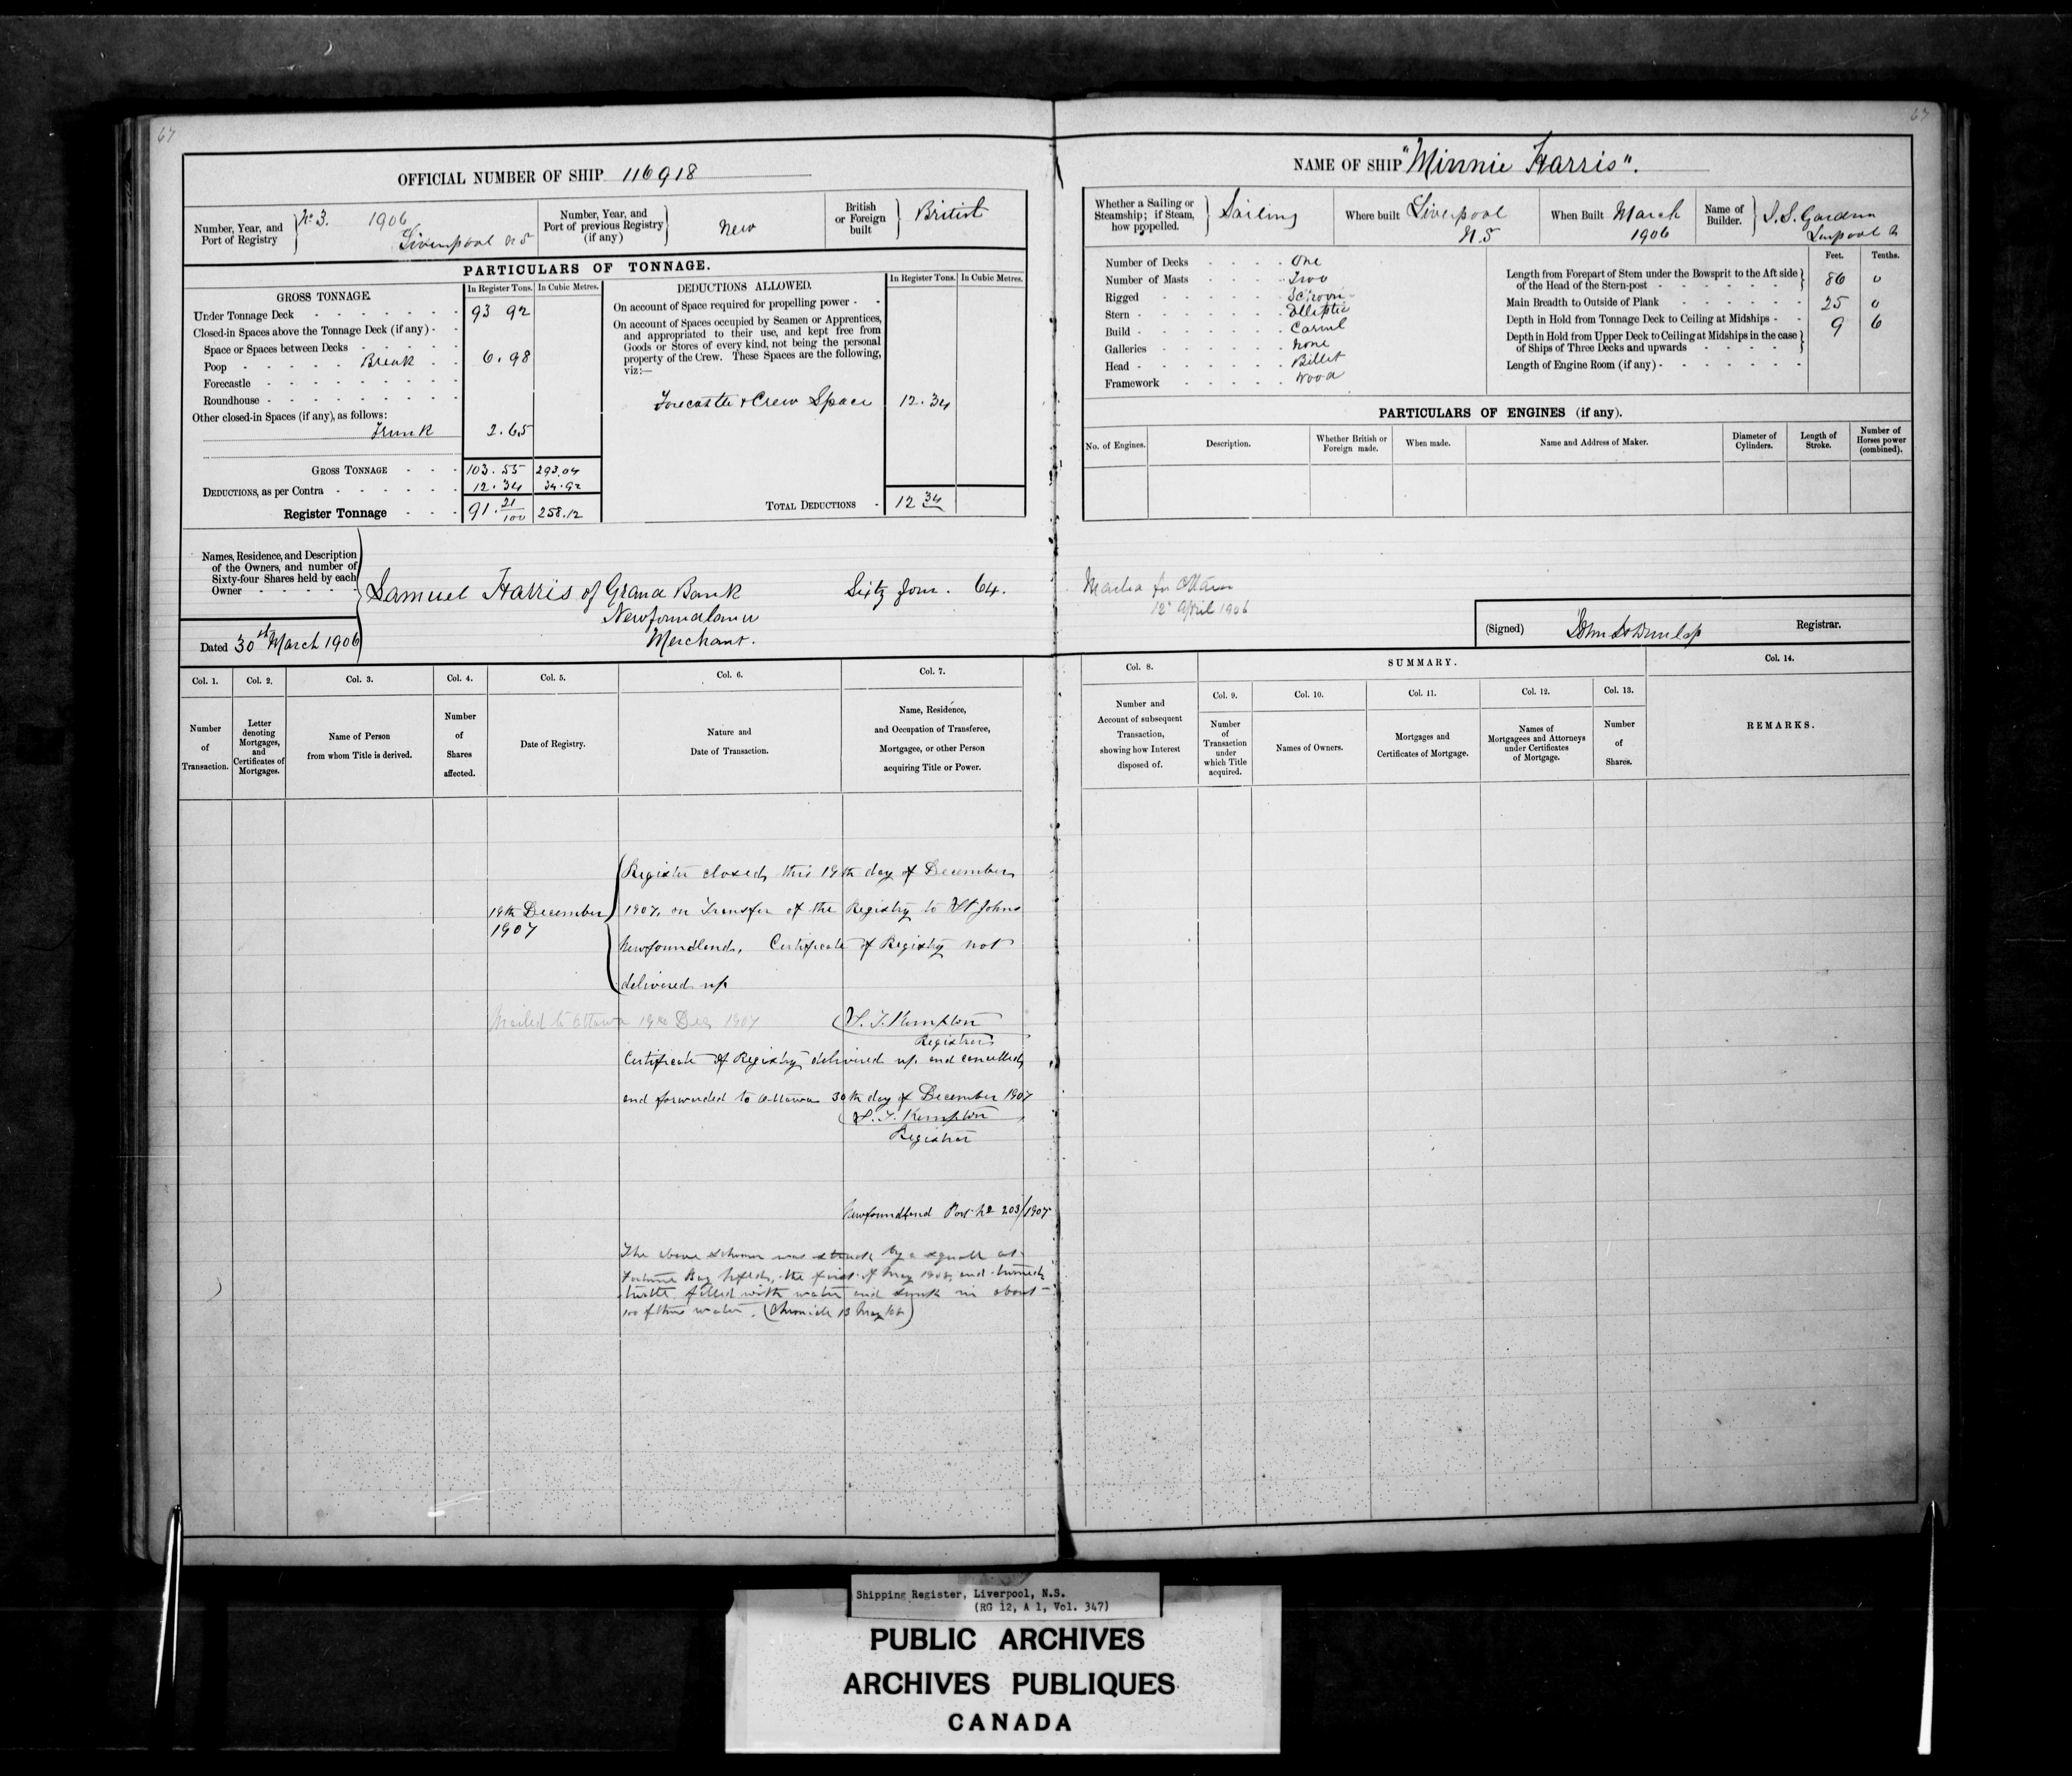 67
67
OFFICIAL NUMBER OF SHIP 116918
Number, Year, and Port of Registry No 3. 1906 Liverpool N S
Number, Year, and Port of previous Registry (if any) New
British or Foreign built British
PARTICULARS OF TONNAGE.
GROSS TONNAGE. In Register Tons. In Cubic Metres.
Under Tonnage Deck 93 92
Closed-in Spaces above the Tonnage Deck (if any)
Space or Spaces between Decks
Poop Break 6.98
Forecastle
Roundhouse
Other closed-in Spaces (if any), as follows:
Trunk 2.65
GROSS TONNAGE 103.55 293.04
DEDUCTIONS, as per Contra 12.34 34.92
Register Tonnage 91.21/100 258.12
DEDUCTIONS ALLOWED. In Register Tons. In Cubic Metres.
On account of Space required for propelling power
On account of Spaces occupied by Seamen or Apprentices,
and appropriated to their use, and kept free from
Goods or Stores of every kind, not being the personal
property of the Crew. These Spaces are the following,
viz:—
Forecastle & Crew Space 12.34
TOTAL DEDUCTIONS 12 34
Names, Residence, and Description
of the Owners, and number of
Sixty-four Shares held by each
Owner
Samuel Harris of Grand Bank Sixty four. 64.
Newfoundland
Merchant.
Dated 30th March 1906
NAME OF SHIP "Minnie Harris".
Whether a Sailing or Steamship; if Steam, how propelled. Sailing
Where built Liverpool N.S
When Built March 1906
Name of Builder. Liverpool
Number of Decks One
Number of Masts Two
Rigged
Stern Elliptic
Build Carvel
Galleries None
Head Billet
Framework Wood
Feet. Tenths.
Length from Forepart of Stem under the Bowsprit to the Aft side
of the Head of the Stern-post 86 0
Main Breadth to Outside of Plank 25 0
Depth in Hold from Tonnage Deck to Ceiling at Midships 9 6
Depth in Hold from Upper Deck to Ceiling at Midships in the case
of Ships of Three Decks and upwards
Length of Engine Room (if any)
PARTICULARS OF ENGINES (if any).
No. of Engines. Description. Whether British or Foreign made. When made. Name and Address of Maker. Diameter of Cylinders. Length of Stroke. Number of Horses power (combined).
12 April 1906
(Signed) Registrar.
Col. 1. Col. 2. Col. 3. Col. 4. Col. 5. Col. 6. Col. 7.
Number of Transaction.
Letter denoting Mortgages, and Certificates of Mortgages.
Name of Person from whom Title is derived.
Number of Shares affected.
Date of Registry.
Nature and Date of Transaction.
Name, Residence, and Occupation of Transferee, Mortgagee, or other Person acquiring Title or Power.
Col. 8. SUMMARY. Col. 14.
Col. 9. Col. 10. Col. 11. Col. 12. Col. 13.
Number and Account of subsequent Transaction, showing how Interest disposed of.
Number of Transaction under which Title acquired.
Names of Owners.
Mortgages and Certificates of Mortgage.
Names of Mortgagees and Attorneys under Certificates of Mortgage.
Number of Shares.
REMARKS.
Register closed, this 19th day of December
19th December 1907
1907, on Transfer of the Registry to St Johns
Newfoundland, Certificate of Registry not
delivered up
Mailed to Ottawa 19th Dec 1907
Kempton
Registrar
Certificate of Registry delivered up and cancelled,
and forwarded to Ottawa 30th day of December 1907
Kempton
Registrar
Newfoundland Port No 203/1907
The above schooner was struck by a squall at
Fortune Bay Nfld, the first of May 1908, and turned
turtle filled with water and sunk in about
100 water. (Chronicle 13 May 08)
Shipping Register, Liverpool, N.S.
(RG 12, A 1, Vol. 347)
PUBLIC ARCHIVES
ARCHIVES PUBLIQUES
CANADA